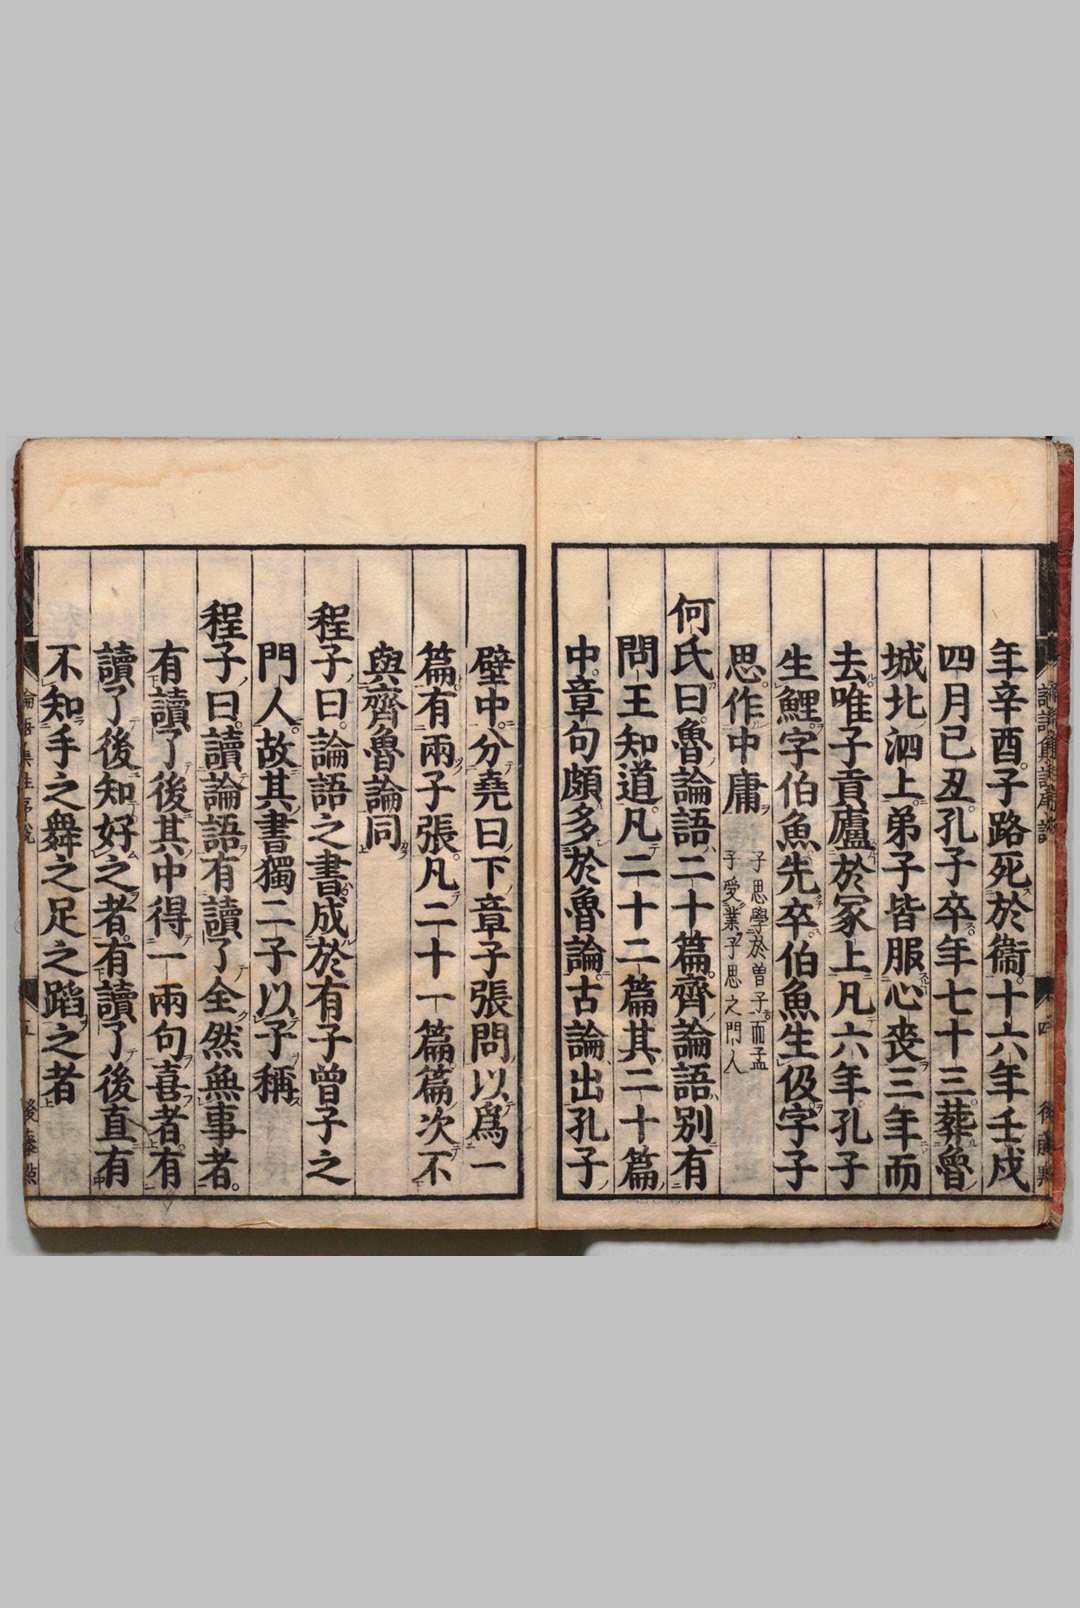 年辛酉。子路死於衞。十六年壬戌
四月己丑。孔子卒。年七十三。葬魯
城北泗上。弟子皆服心喪三年而
去。唯子貢廬於冢上凡六年。孔子
生鯉。字伯魚。先卒。伯魚生伋。字子
思。作中庸
子思學於曽子而孟
子受業子思之門人
何氏曰。魯論語二十篇。齊論語別有
問王知道。凡二十二篇。其二十篇
中。章句頗多於魯論。古論出孔子
壁中。分堯曰下章子張問。以爲一
篇。有兩子張。凡二十一篇。篇次不
與齊魯論同
程子曰。論語之書成於有子曾子之
門人。故其書獨二子以子稱
程子曰。讀論語。有讀了全然無事者。
有讀了後其中得一兩句喜者。有
讀了後知好之者。有讀了後直有
不知手之舞之足之蹈之者
論語集註序說
五
後藤點